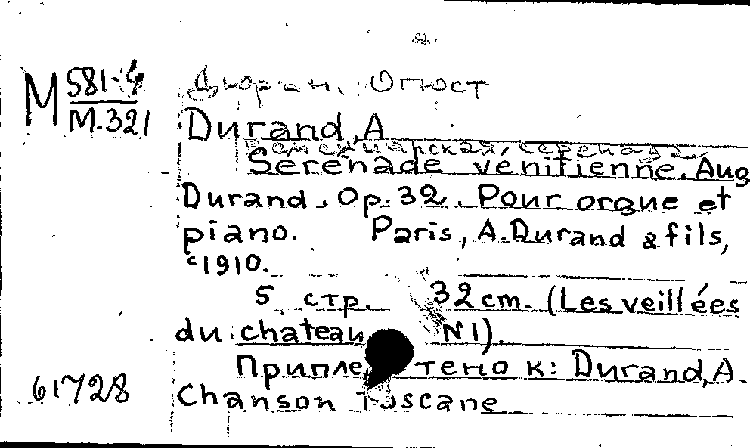 М 581-4
М.321
Дюран, Огюст
Durand, A
Венецианская серенада
Sérénade vénitienne. Aug
Durand. Op. 32. Pour orgue et
piano. Paris, A. Durand & fils,
c1910.
5 стр. 32 cm. (Les veillées
du chateau N1).
Приплетено к: Durand, A.
61728
Chanson Toscane